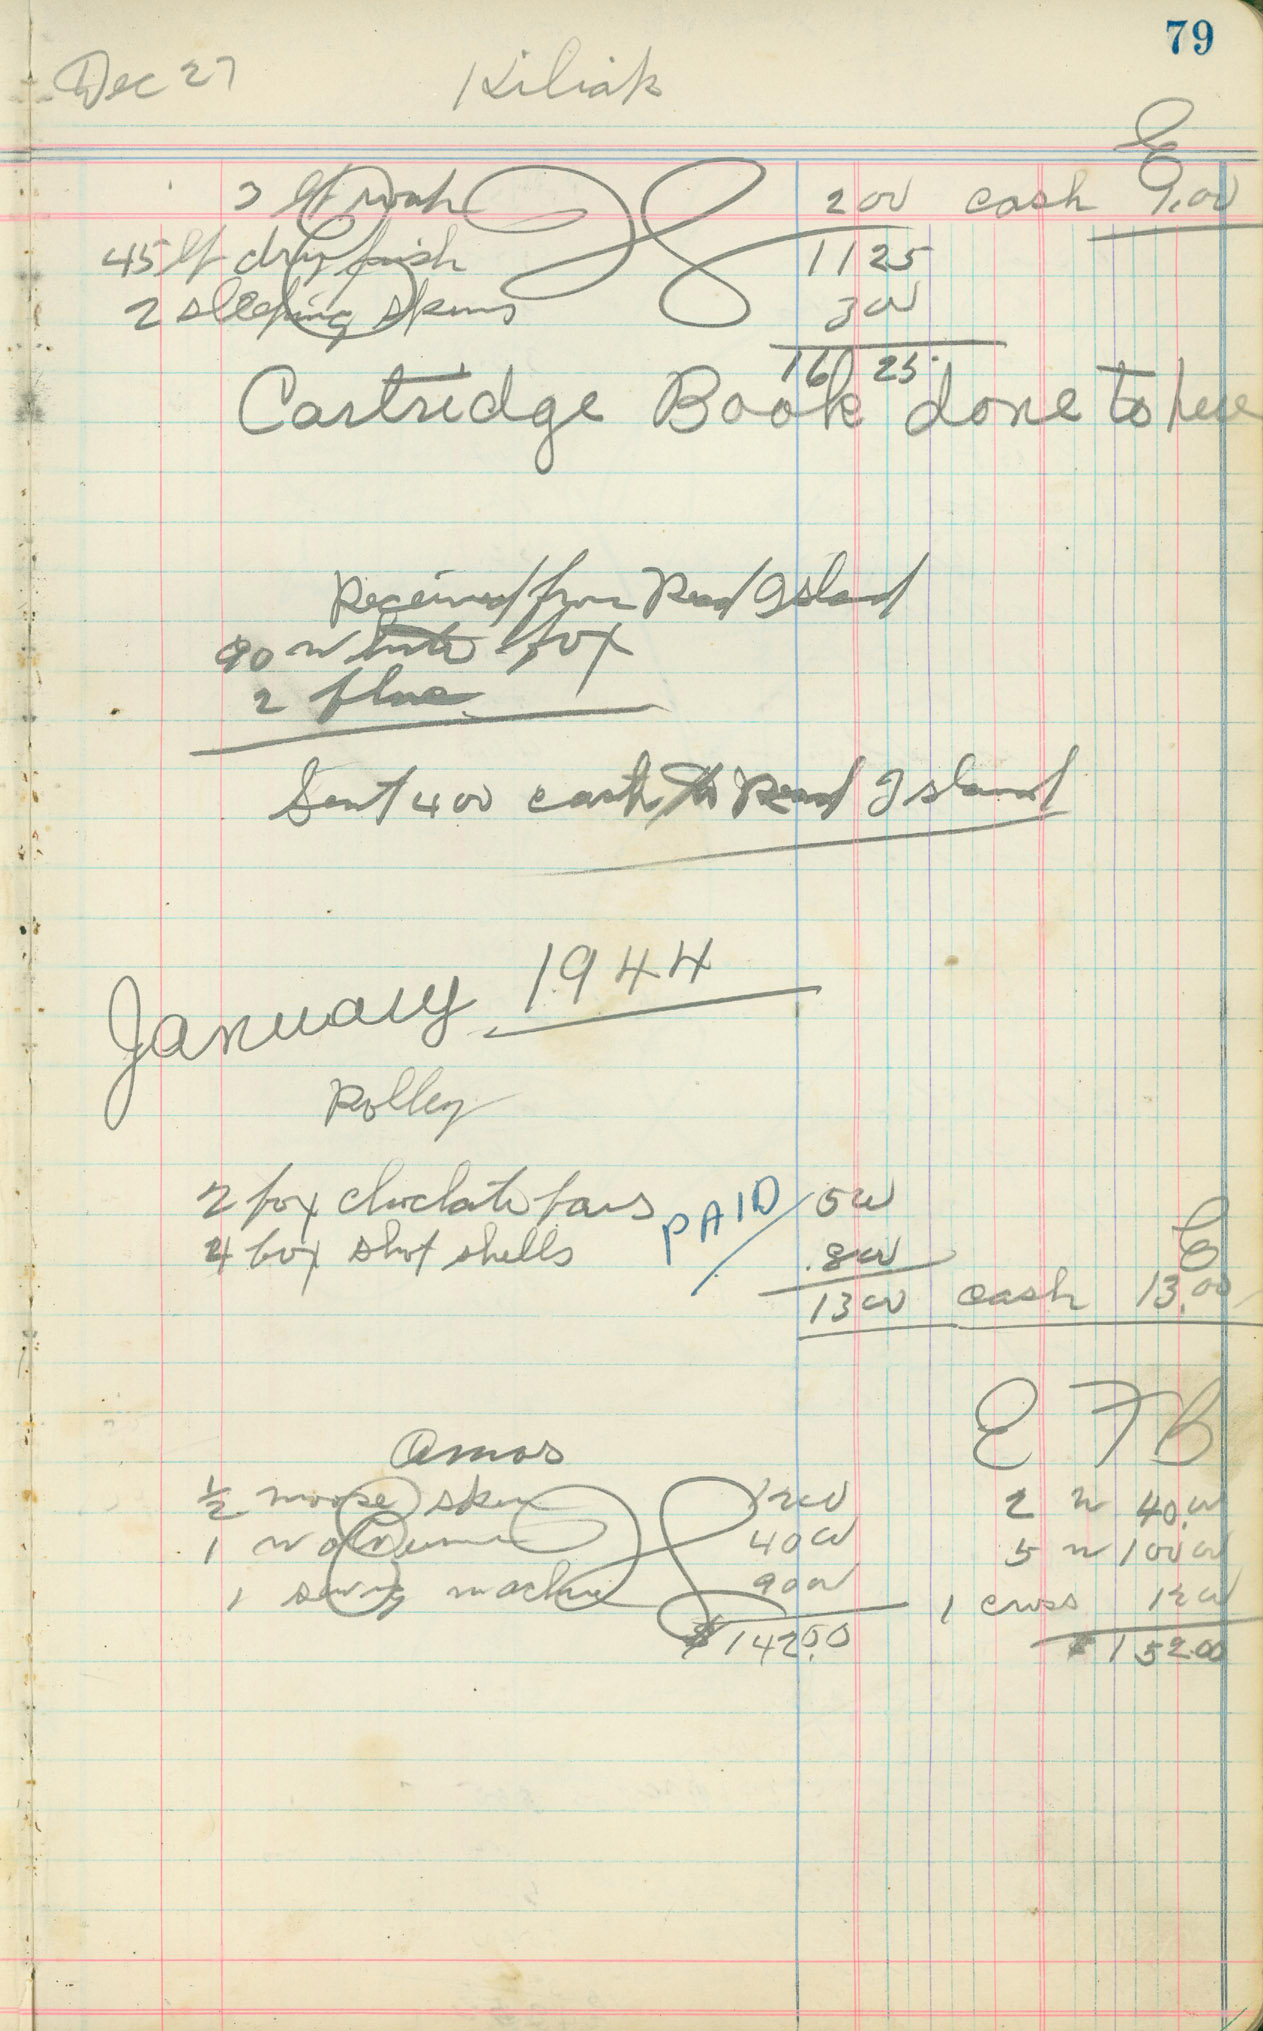 79
Dec 27 Kiliak
E
2 00 cash 9.00
45 lb dry fish 11 25
2 sleeping skins 3 00
16 25
Cartridge Book done to here
Received from Read Island
90 white fox
2 blue
Sent 400 cash to Read Island
January 1944
Rolley
2 box choclate bars PAID 5 00
4 box shot shells 8 00 E
13 00 cash 13.00
E F B
Amos
1/2 moose skin 12 00 2 w 40.00
1 wolverine 40 00 5 w 100 00
1 sewing machine 90 00 1 cross 12 00
$142.00 $152.00